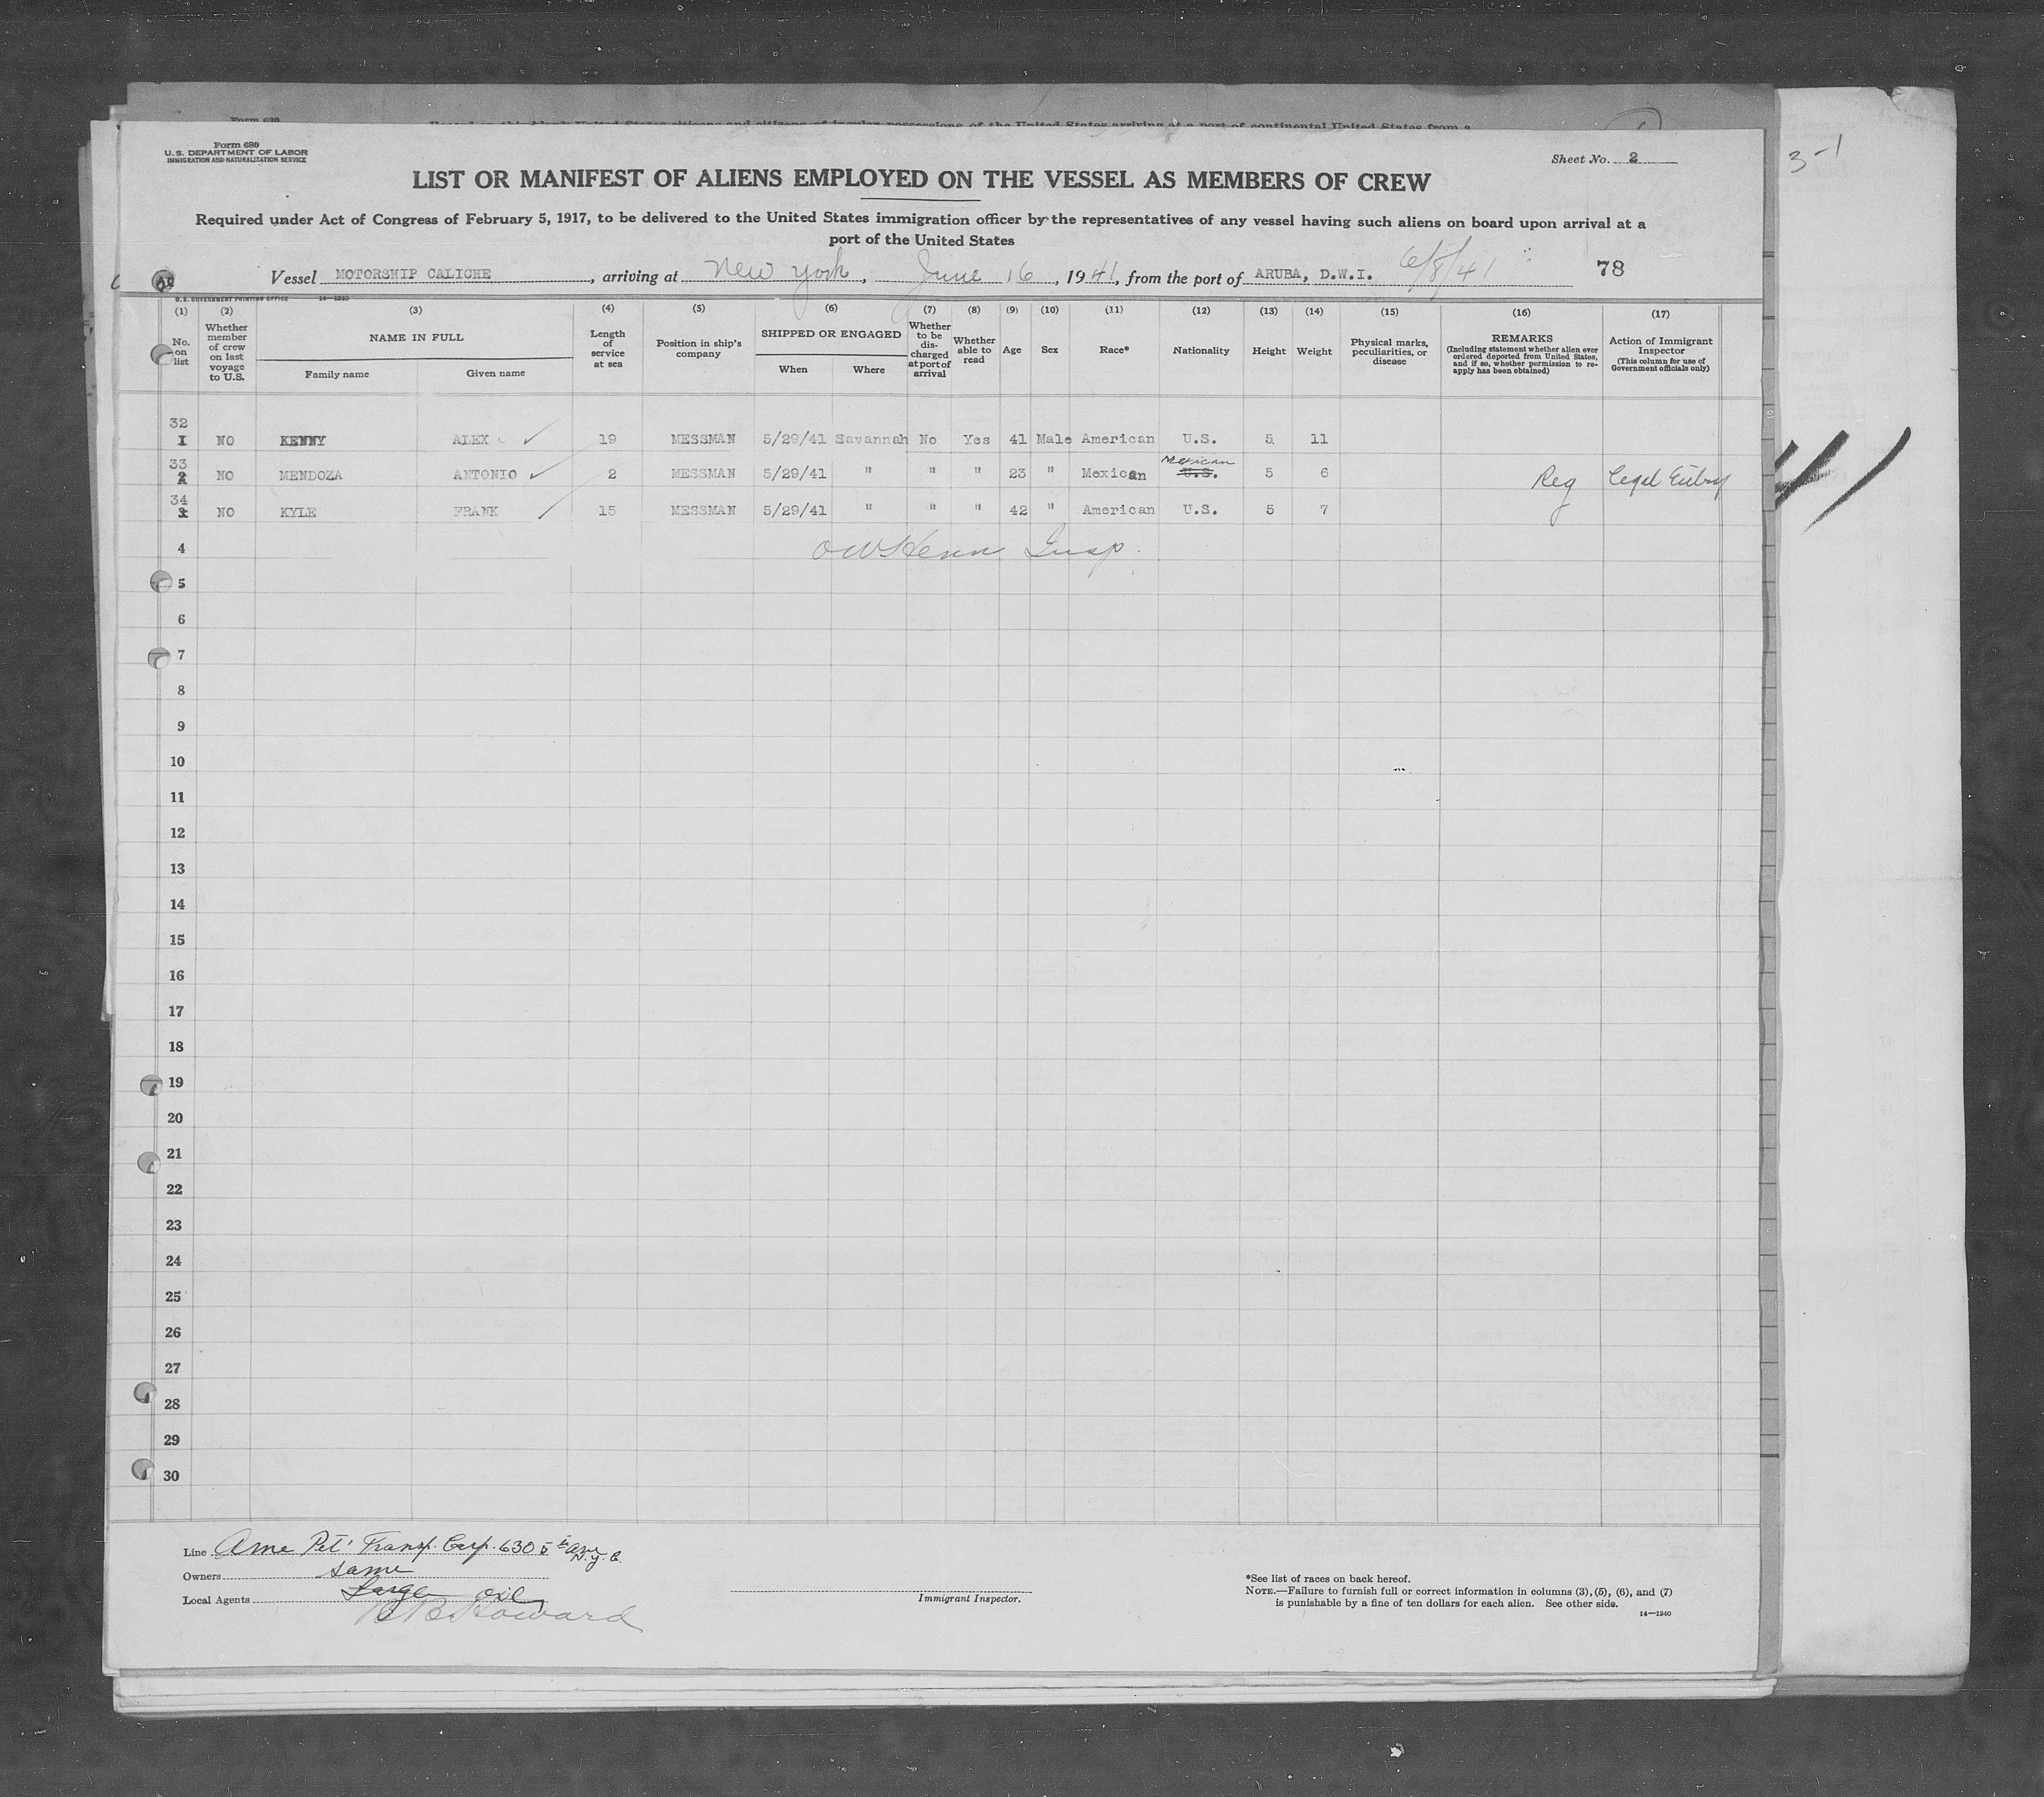 Form 680
U. S. DEPARTMENT OF LABOR
IMMIGRATION AND NATURALIZATION SERVICE
Sheet No. 2
3-1
LIST OR MANIFEST OF ALIENS EMPLOYED ON THE VESSEL AS MEMBERS OF CREW
Required under Act of Congress of February 5, 1917, to be delivered to the United States immigration officer by the representatives of any vessel having such aliens on board upon arrival at a
port of the United States
Vessel MOTORSHIP CALICHE, arriving at New York, June 16, 1941, from the port of ARUBA, D.W.I. 6/8/41 78
U. S. GOVERNMENT PRINTING OFFICE 14—1240
(1) (2) (3) (4) (5) (6) (7) (8) (9) (10) (11) (12) (13) (14) (15) (16) (17)
No. on list
Whether member of crew on last voyage to U.S.
NAME IN FULL
Family name
Given name
Length of service at sea
Position in ship's company
SHIPPED OR ENGAGED
When
Where
Whether to be discharged at port of arrival
Whether able to read
Age
Sex
Race*
Nationality
Height
Weight
Physical marks, peculiarities, or disease
REMARKS
(Including statement whether alien ever ordered deported from United States, and if so, whether permission to reapply has been obtained)
Action of Immigrant Inspector
(This column for use of Government officials only)
32
1 NO KENNY ALEX 19 MESSMAN 5/29/41 Savannah No Yes 41 Male American U.S. 5 11
33
Mexican
2 NO MENDOZA ANTONIO 2 MESSMAN 5/29/41 " " " 23 " Mexican U.S. 5 6 Reg Legal Entry
34
3 NO KYLE FRANK 15 MESSMAN 5/29/41 " " " 42 " American U.S. 5 7
4 Insp.
5
6
7
8
9
10
11
12
13
14
15
16
17
18
19
20
21
22
23
24
25
26
27
28
29
30
Line Ame Pet' Transp. Corp. 630 5th Ave N.Y.C.
Owners same
Local Agents Large Oil
Howard
Immigrant Inspector.
*See list of races on back hereof.
NOTE.—Failure to furnish full or correct information in columns (3), (5), (6), and (7)
is punishable by a fine of ten dollars for each alien. See other side.
14—1240